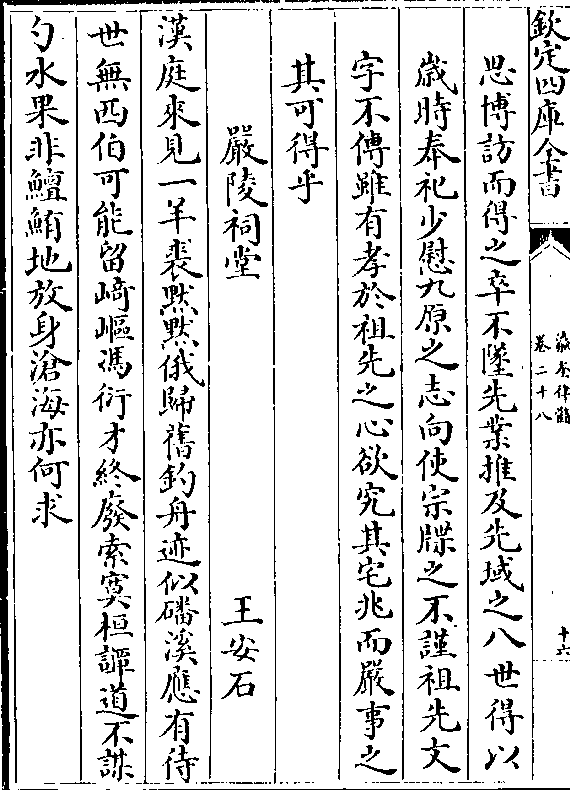 欽定四庫全書
卷二十八
十六
思博訪而得之卒不墜先業推及先域之八世得以
歲時奉祀少慰九原之志向使宗牒之不謹祖先文
字不傳雖有孝於祖先之心欲究其宅兆而嚴事之
其可得乎
嚴陵祠堂 王安石
漢庭來見一羊裘黙黙俄歸舊釣舟迹似磻溪應有待
世無西伯可能留﨑嶇馮衍才終廢索寞桓譚道不謀
勺水果非鱣鮪地放身滄海亦何求